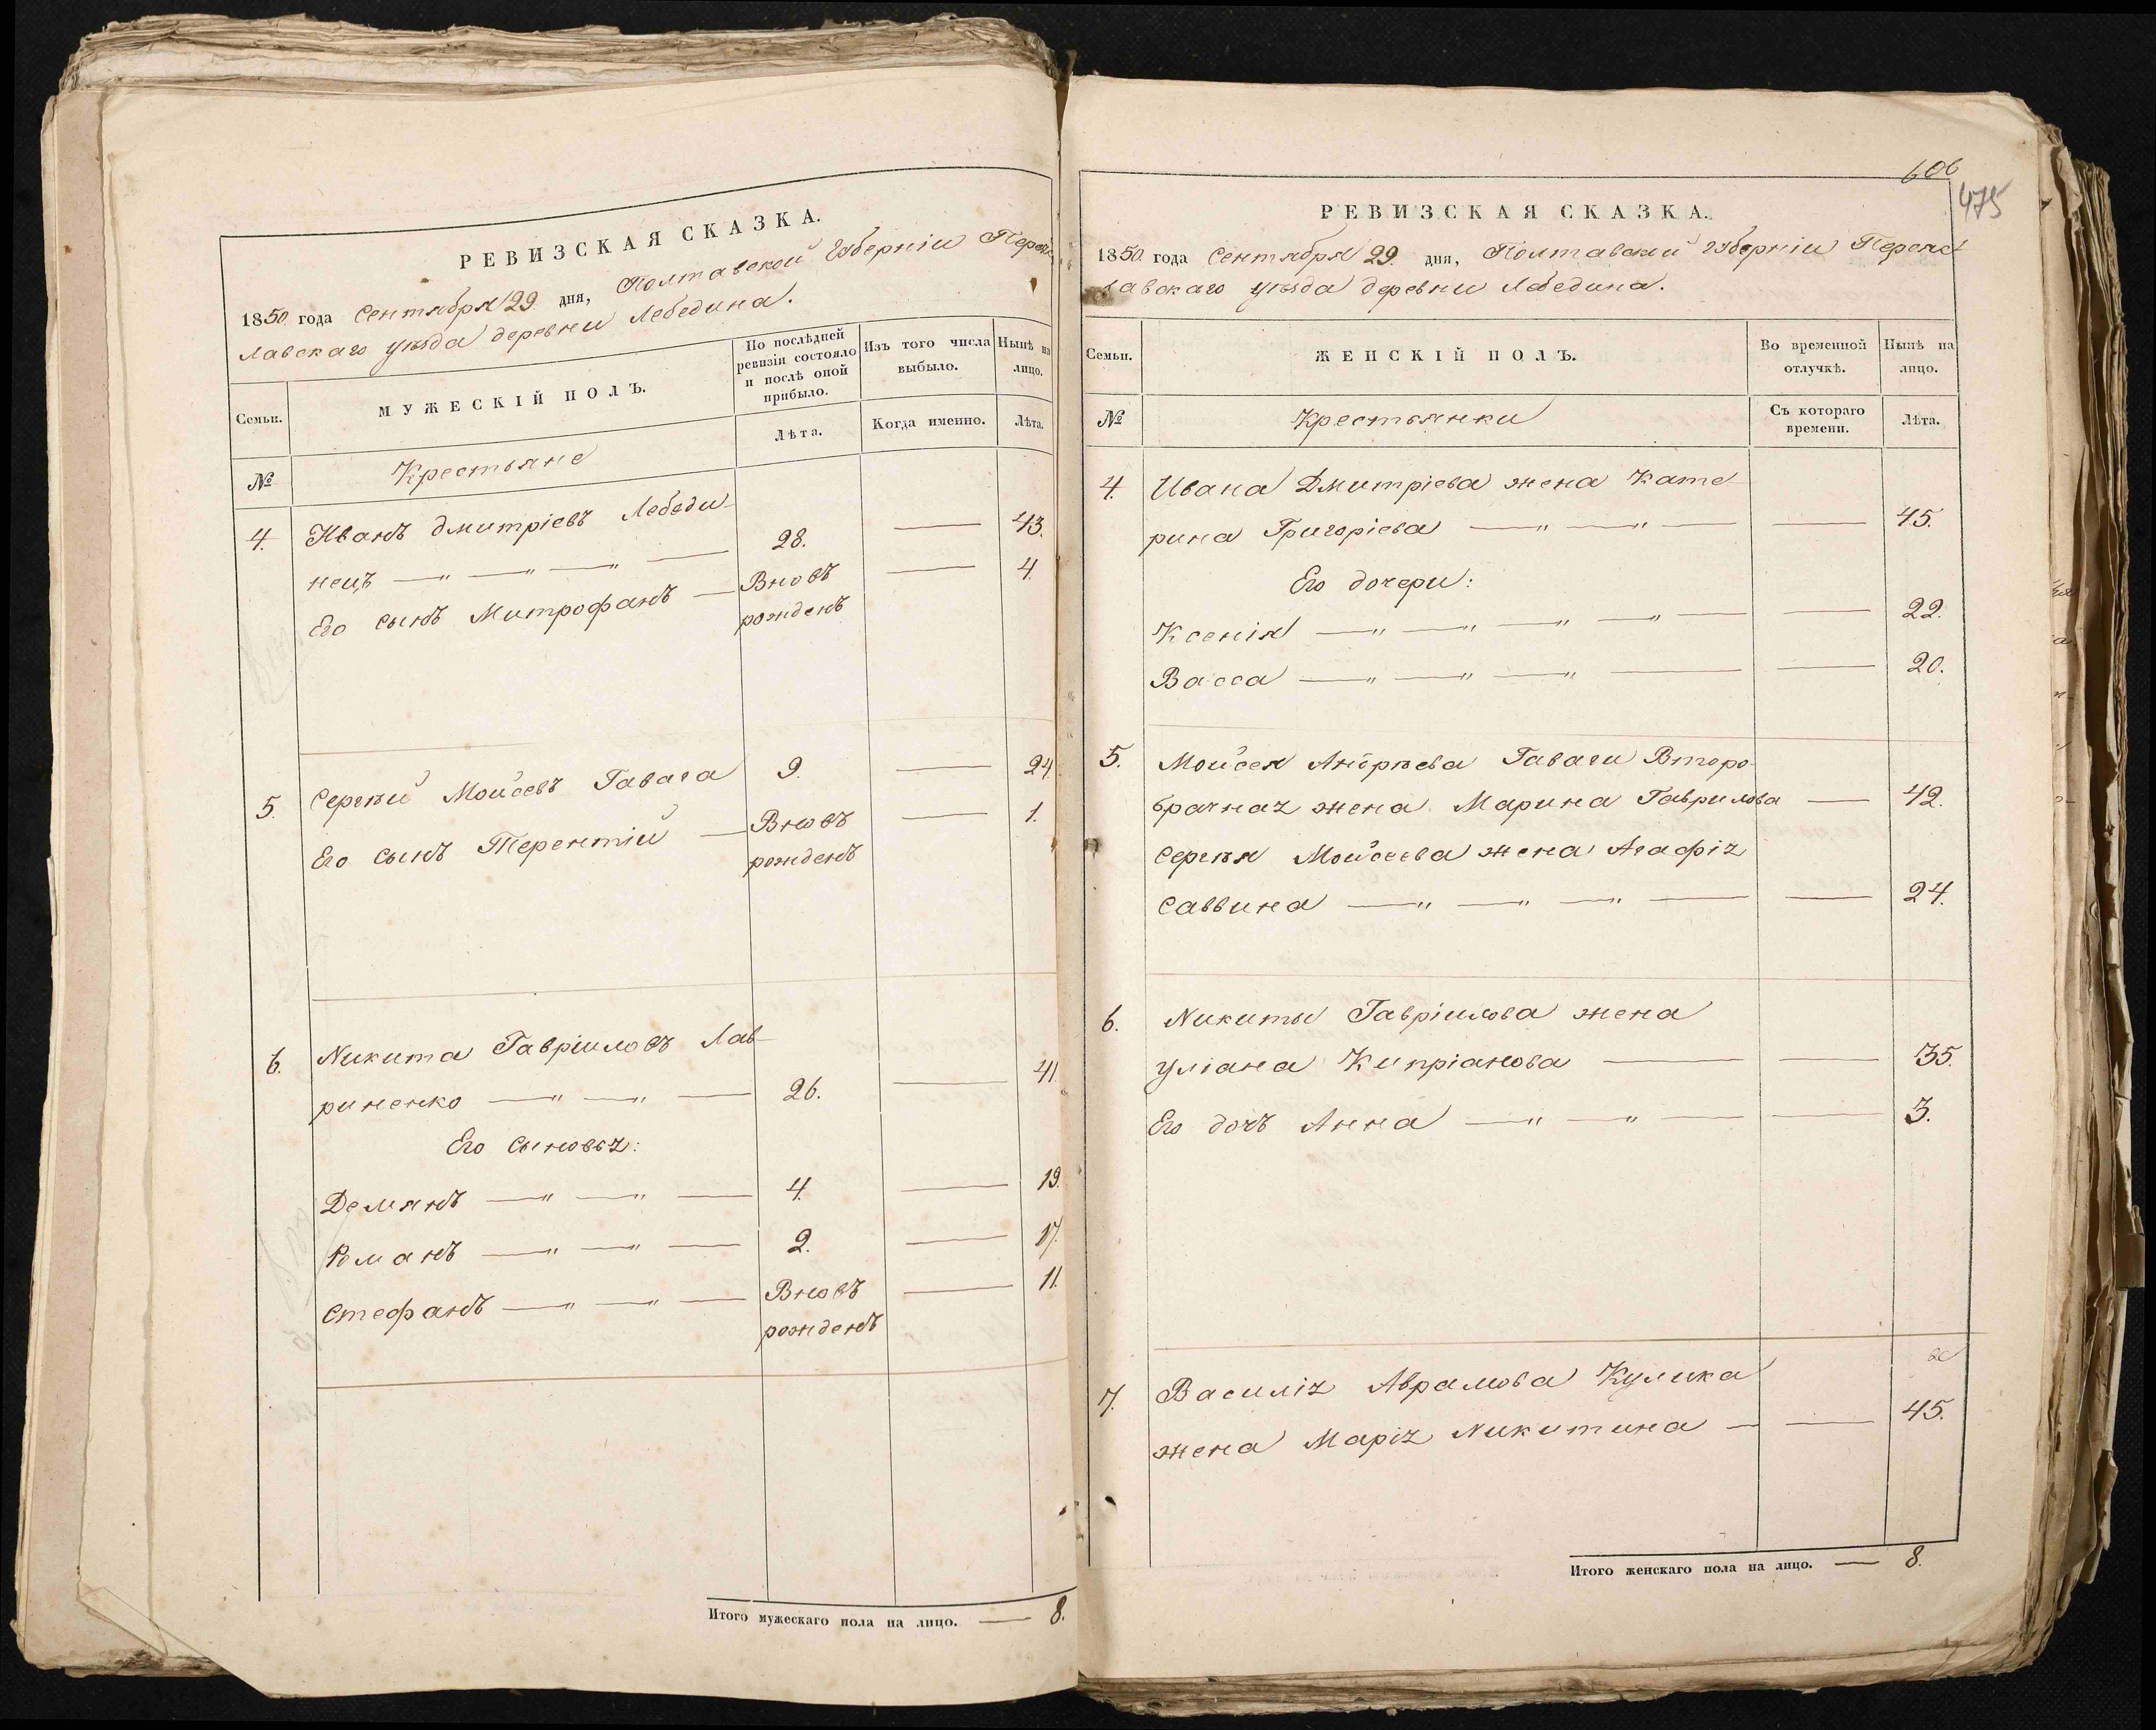 РЕВИЗСКАЯ СКАЗКА.
1850 года Сентября 29 дня, Полтавской Губерніи Перея
лавскаго уѣзда деревни Лебедина.
Семьи.
МУЖЕСКІЙ ПОЛЪ.
По послѣдней
ревизіи состояло
и послѣ оной
прибыло.
Изъ того числа
выбыло.
Нынѣ на
лицо.
Лѣта.
Когда именно.
Лѣта.
№
Крестьяне
4. Иванъ Дмитріевъ Лебеди-
нецъ — " — " — " — 28. — 43.
Его сынъ Митрофанъ — Вновь — 4.
рожденъ
5. Сергѣй Моисѣевъ Гавага 9. — 24.
Его сынъ Терентій — Вновь — 1.
рожденъ
6. Никита Гавріиловъ Лав-
риненко — " — " — 26. — 41.
Его сыновья:
Демянъ — " — " — 4. — 19.
Романъ — " — " — 2. — 17.
Стефанъ — " — " — Вновь — 11.
рожденъ
Итого мужескаго пола на лицо. — 8.
606
475
РЕВИЗСКАЯ СКАЗКА.
1850 года Сентября 29 дня, Полтавской Губерніи Переяс
лавскаго уѣзда деревни Лебедина.
Семьи.
ЖЕНСКІЙ ПОЛЪ.
Во временной
отлучкѣ.
Нынѣ на
лицо.
№
Крестьянки
Съ котораго
времени.
Лѣта.
4. Ивана Дмитріева жена Кате
рина Григоріева — " — " — — 45.
Его дочери:
Ксенія — " — " — " — " — — 22.
Васса — " — " — " — — 20.
5. Моисея Андрѣева Гаваги Второ-
брачная жена Марина Гаврилова — 42.
Сергѣя Моисеева жена Агафія
Саввина — " — " — " — — 24.
6. Никиты Гавріилова жена
Уліана Кипріанова — — 35.
Его дочь Анна — " — " — — 3.
7. Василія Аврамова Кулика
жена Марія Никитина — — 45.
Итого женскаго пола на лицо. — 8.